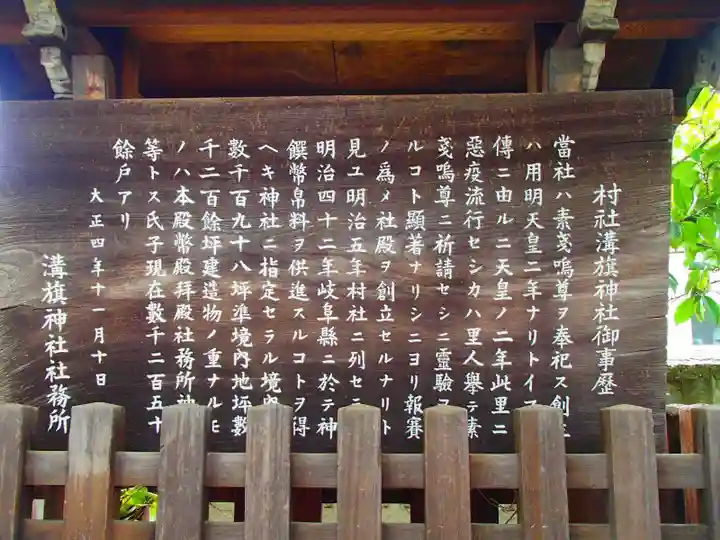 村社溝旗神社御事歷
當社ハ素戔嗚尊ヲ奉祀ス創立
ハ用明天皇二年ナリトイフ
傳ニ由ルニ天皇ノ二年此里ニ
惡疫流行セシカハ里人舉テ素
戔嗚尊ニ祈請セシニ靈驗
ルコト顯著ナリシニヨリ報賽
ノ爲メ社殿ヲ創立セルナリト
見ユ明治五年村社ニ列セラ
明治四十二年岐阜縣ニ於テ神
饌幣帛料ヲ供進スルコトヲ得
ヘキ神社ニ指定セラル境內
數千百九十八坪準境內地坪數
千二百餘坪建造物ノ重ナルモ
ノハ本殿幣殿拜殿社務所神
等トス氏子現在數千二百五十
餘戸アリ
大正四年十一月十日
溝旗神社社務所